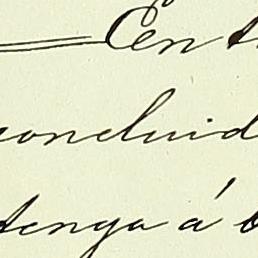 En t
concluid
tenga á